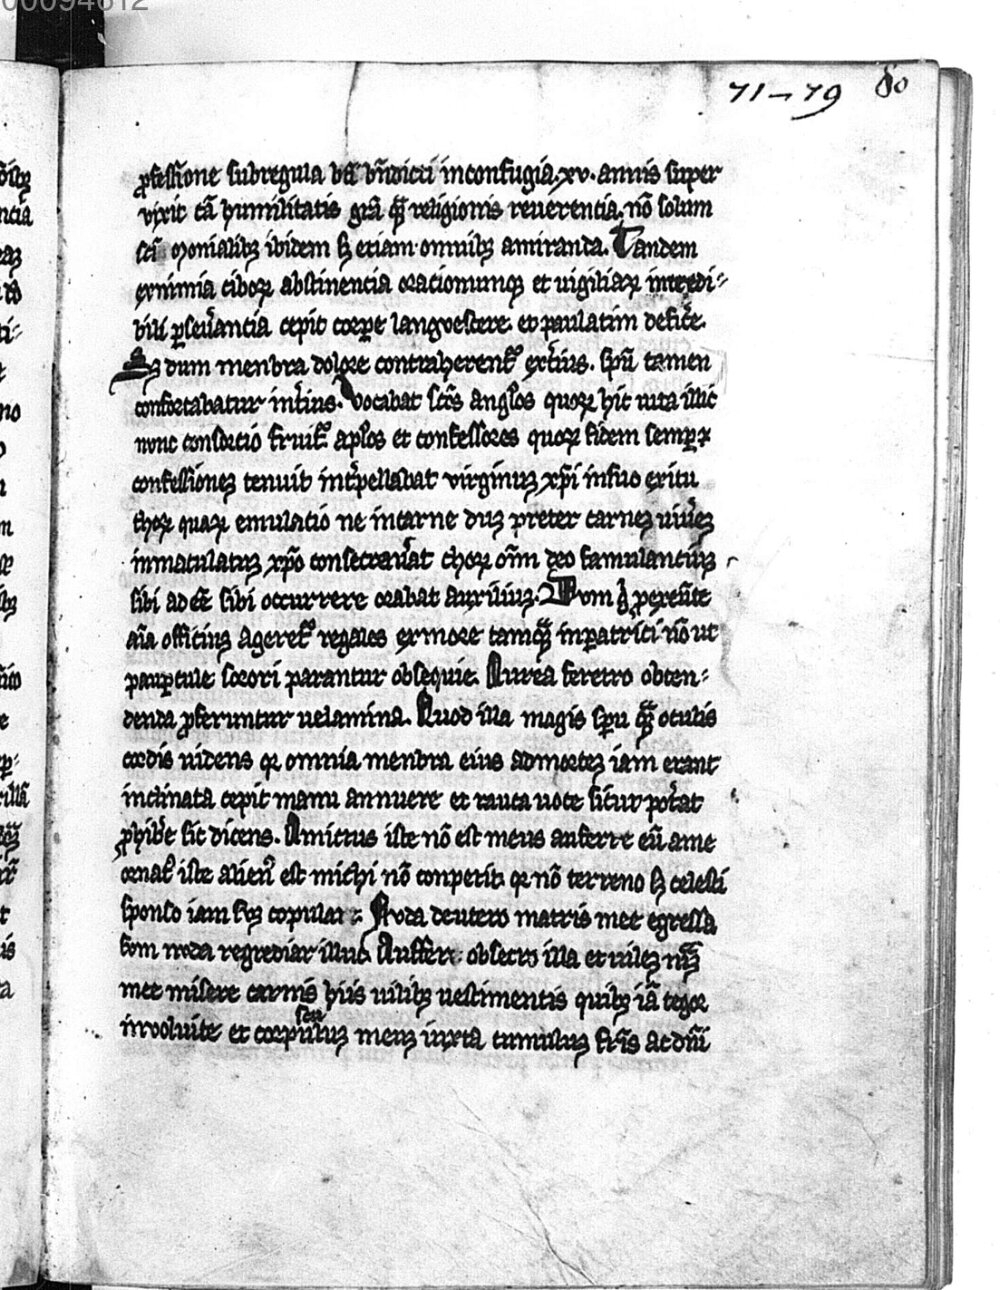 00094612
71–79 80
ꝓfessione sub regula bti bn̄dicti in confugia .xv. annis super
vixit tā humilitatis grā qm̄ religionis reuerentia. nō solum
scī monialibꝫ ibidem sꝫ etiam omnibꝫ amiranda. Tandem
eximia ciboꝝ abstinencia oracionumqꝫ et uigiliaꝝ incredi-
bili ꝑseuantia cepit corꝑe langvescere. et paulatim deficͤe.
Sꝫ dum menbra dolore contraherent᷑ exͭius. spū tamen
confortabatur inͭius. vocabat scōs anglos quoꝝ hic uita illic
nunc consorcio fruit᷑ aplos et confessores quoꝝ fidem semꝑ ⁊
confessionē tenuit inͭpellabat virginuꝫ xp̄i in suo exitu
choꝝ quaꝝ emulatio ne in carne duꝫ preter carneꝫ uiueꝫ
inmaculatuꝫ xp̄o consecrauat choꝝ om̄ deo famulanciuꝫ
sibi adeē sibi occurrere orabat auxiliuꝫ. Dum g̊ ꝑ exeūte
aīa officiuꝫ ageret᷑ regales ex more tamqm̄ inꝑatrici nō ut
pauꝑcule sorori parantur obsequie. Aurea feretro obten-
denda ꝓferuntur uelamina. Quod illa magis spū qm̄ oculis
cordis uidens qꝛ omnia menbra eius ad morteꝫ iam erant
inclinata cepit manu annuere et rauca uoce sicut potat
ꝓhibͤe sic dicens. Amictus iste nō est meus auferte eū a me
ornat᷑ iste alien᷑ est michi nō conpetit. qꝛ nō terreno sꝫ celesti
sponso iam suꝫ copulata. Nuda de utero matris mee egressa
sum nuda regrediar illuc. Aufferte obsecro illa et uileꝫ massā
mee misere carnis hiis uilibꝫ uestimentis quibꝫ iā tegor
inuoluite et corpusculuꝫ meuꝫ iuxta tumuluꝫ fr̄is ac dn̄i